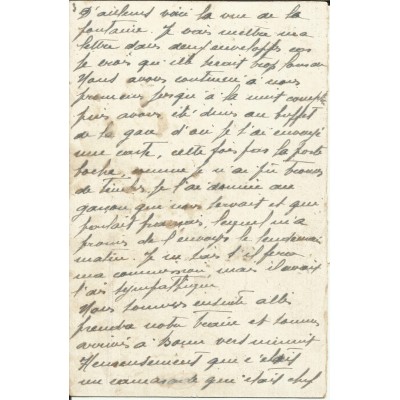 D'ailleurs voici la vue de la
fontaine. Je vais mettre ma
lettre dans deux enveloppes car
je crois qu'elle serait trop lourde
Nous avons continué à nous
promener jusqu'à la nuit
puis avons été diner au buffet
de la gare d'où je t'ai envoyé
une carte, cette fois pas la poste
boche, comme je n'ai pu trouver
de timbres je l'ai donnée au
garçon qui nous servait et qui
parlait français, lequel m'a
promis de l'envoyer le lendemain
matin. Je ne sais s'il fera
ma commission mais il avait
l'air sympathique
Nous sommes ensuite allé
prendre notre train et sommes
arrivés à Bonn vers minuit
Heureusement que c'était
un camarade qui était chef